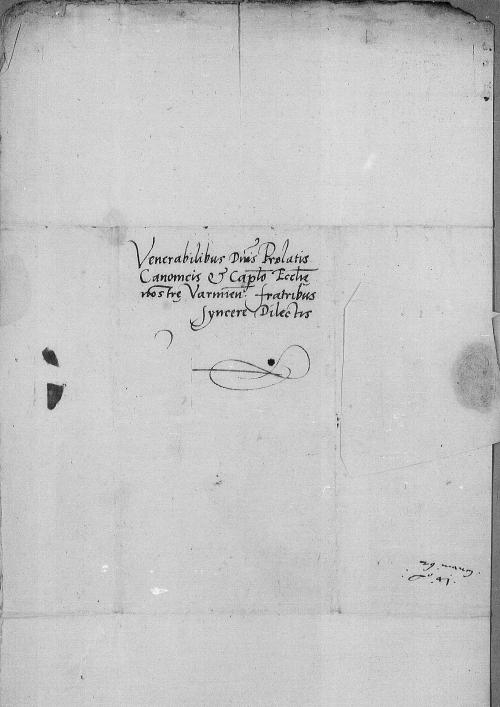 Venerabilibus Dnis Prelatis
Canonicis & Caplo Ecclię
nostrę Varmien: fratribus
Syncere Dilectis
29.
41.